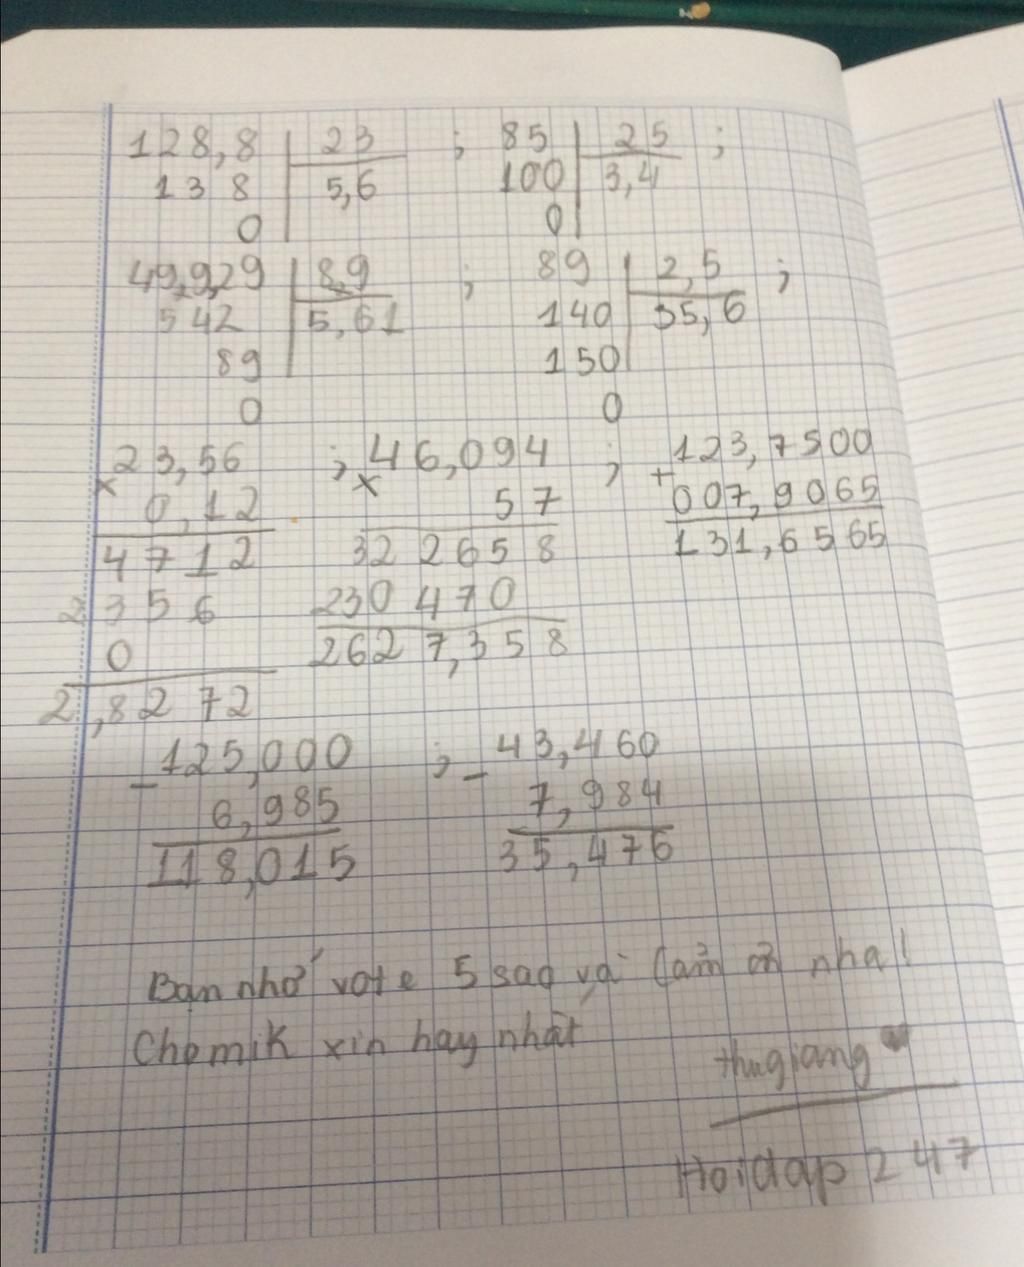 128,8 | 23 ; 85 | 25 ;
13 8 | 5,6 100 | 3,4
0 0
49,9,29 | 8,9 ; 89 | 2,5 ;
542 | 5,61 140 | 35,6
89 150
0 0
23,56 ; 46,094 ; 123,7500
× 0,12 × 57 + 007,9065
4712 322658 131,6565
2356 230470
0 2627,358
2,8272
125,000 ; 43,460
- 6,985 - 7,984
118,015 35,476
Bạn nhớ vote 5 sao và Cảm ơn nha!
Cho mik xin hay nhất
thugiang
Hoidap 247